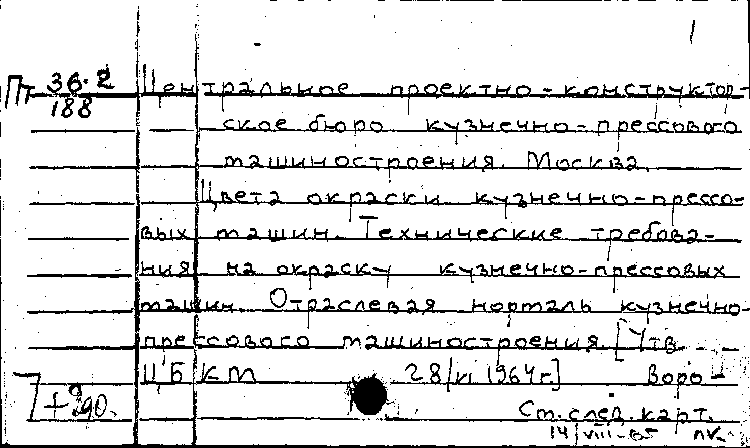 1
Пт 36.2
188
Центральное проектно-конструктор-
ское бюро кузнечно-прессового
машиностроения. Москва.
Цвета окраски кузнечно-прессо-
вых машин. Технические требова-
ния на окраску кузнечно-прессовых
машин. Отраслевая нормаль кузнечно-
прессового машиностроения. [Утв.
ЦБКМ 28/VI 1964г.] Воро-
Ст. след. карт.
14/VIII-65